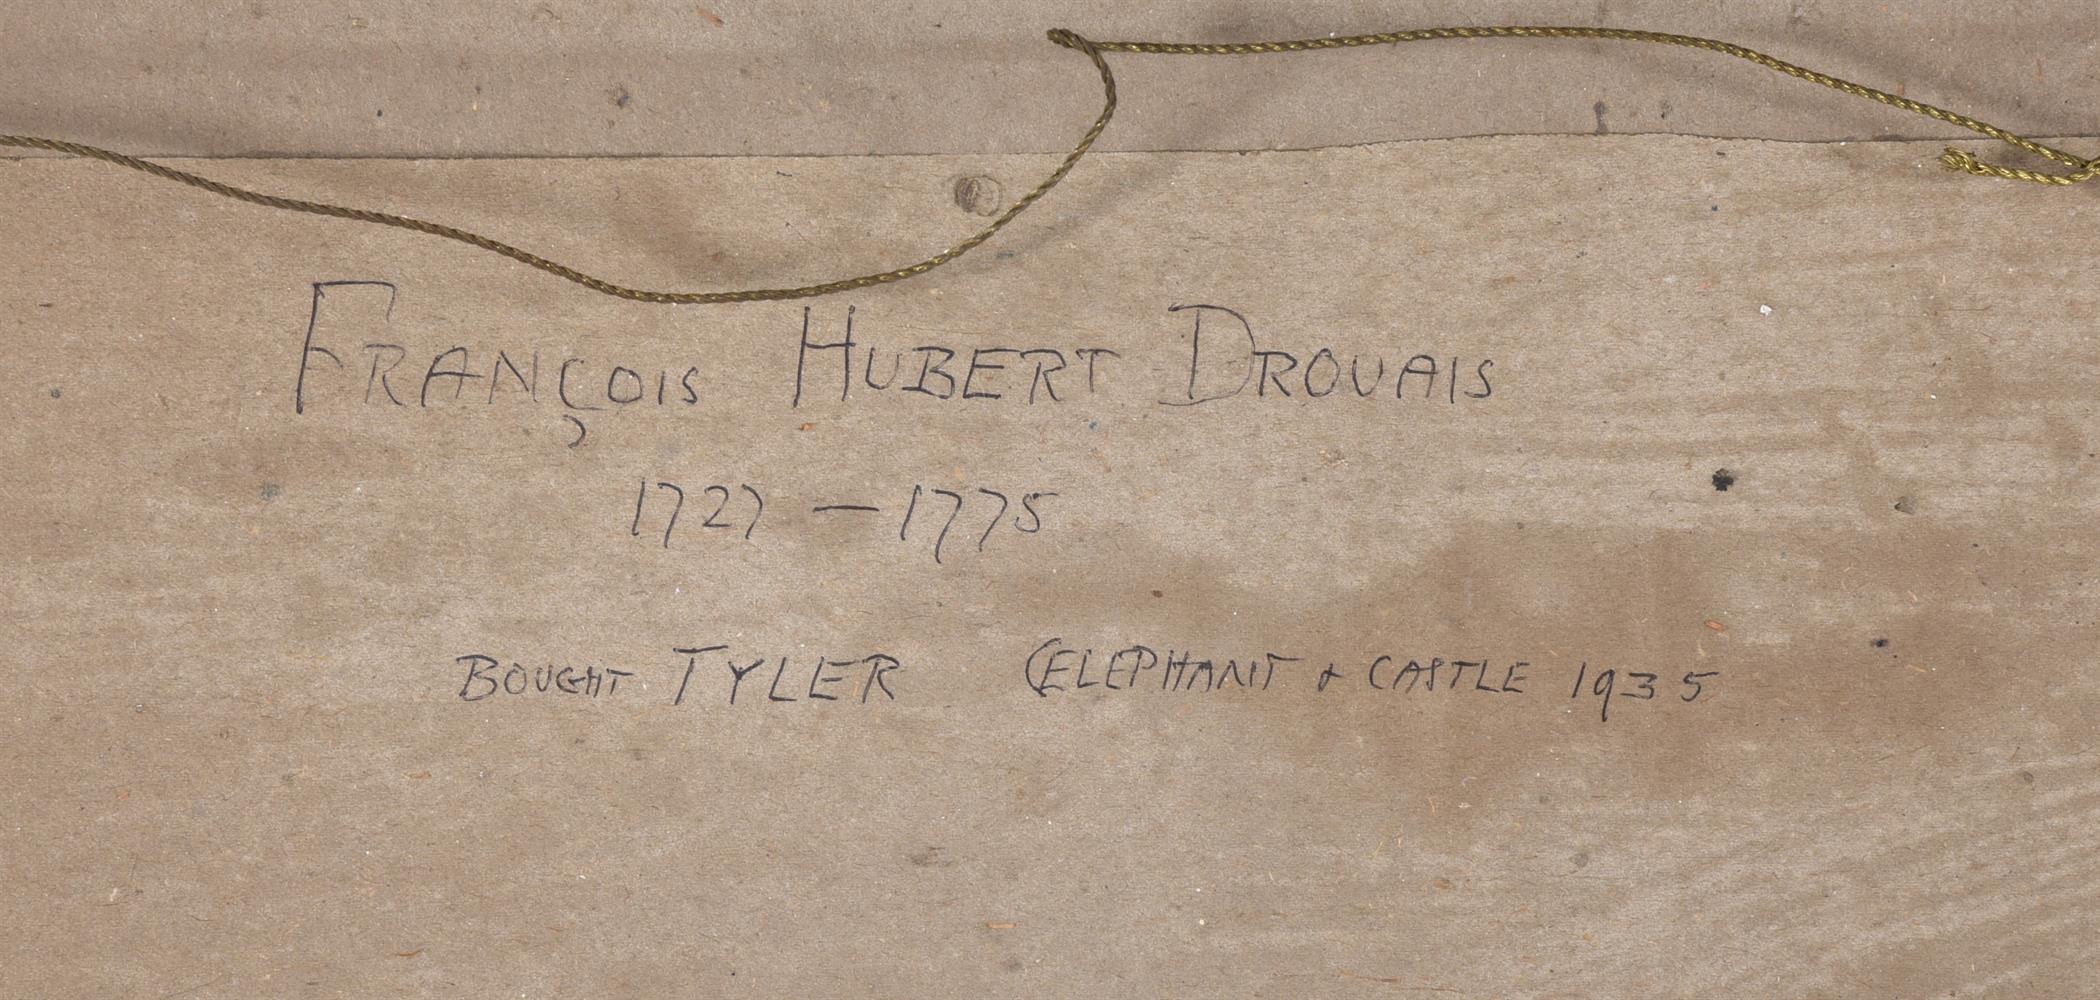 FRANÇOIS HUBERT DROUAIS
1727 — 1775
BOUGHT TYLER ELEPHANT & CASTLE 1935